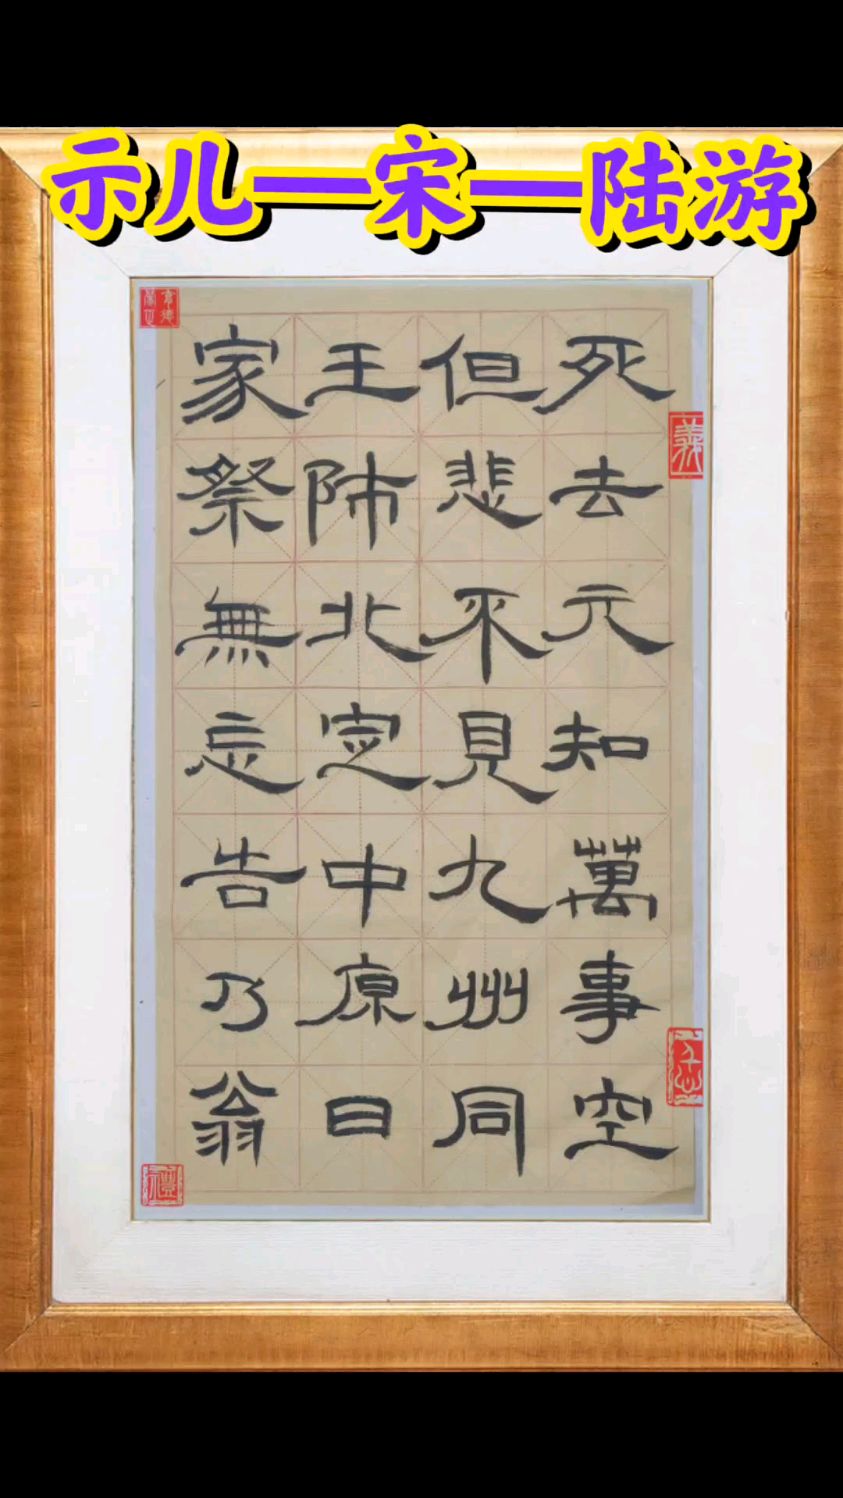 示儿—宋—陆游
死去元知萬事空
但悲不見九州同
王師北定中原日
家祭無忘告乃翁
義
禮